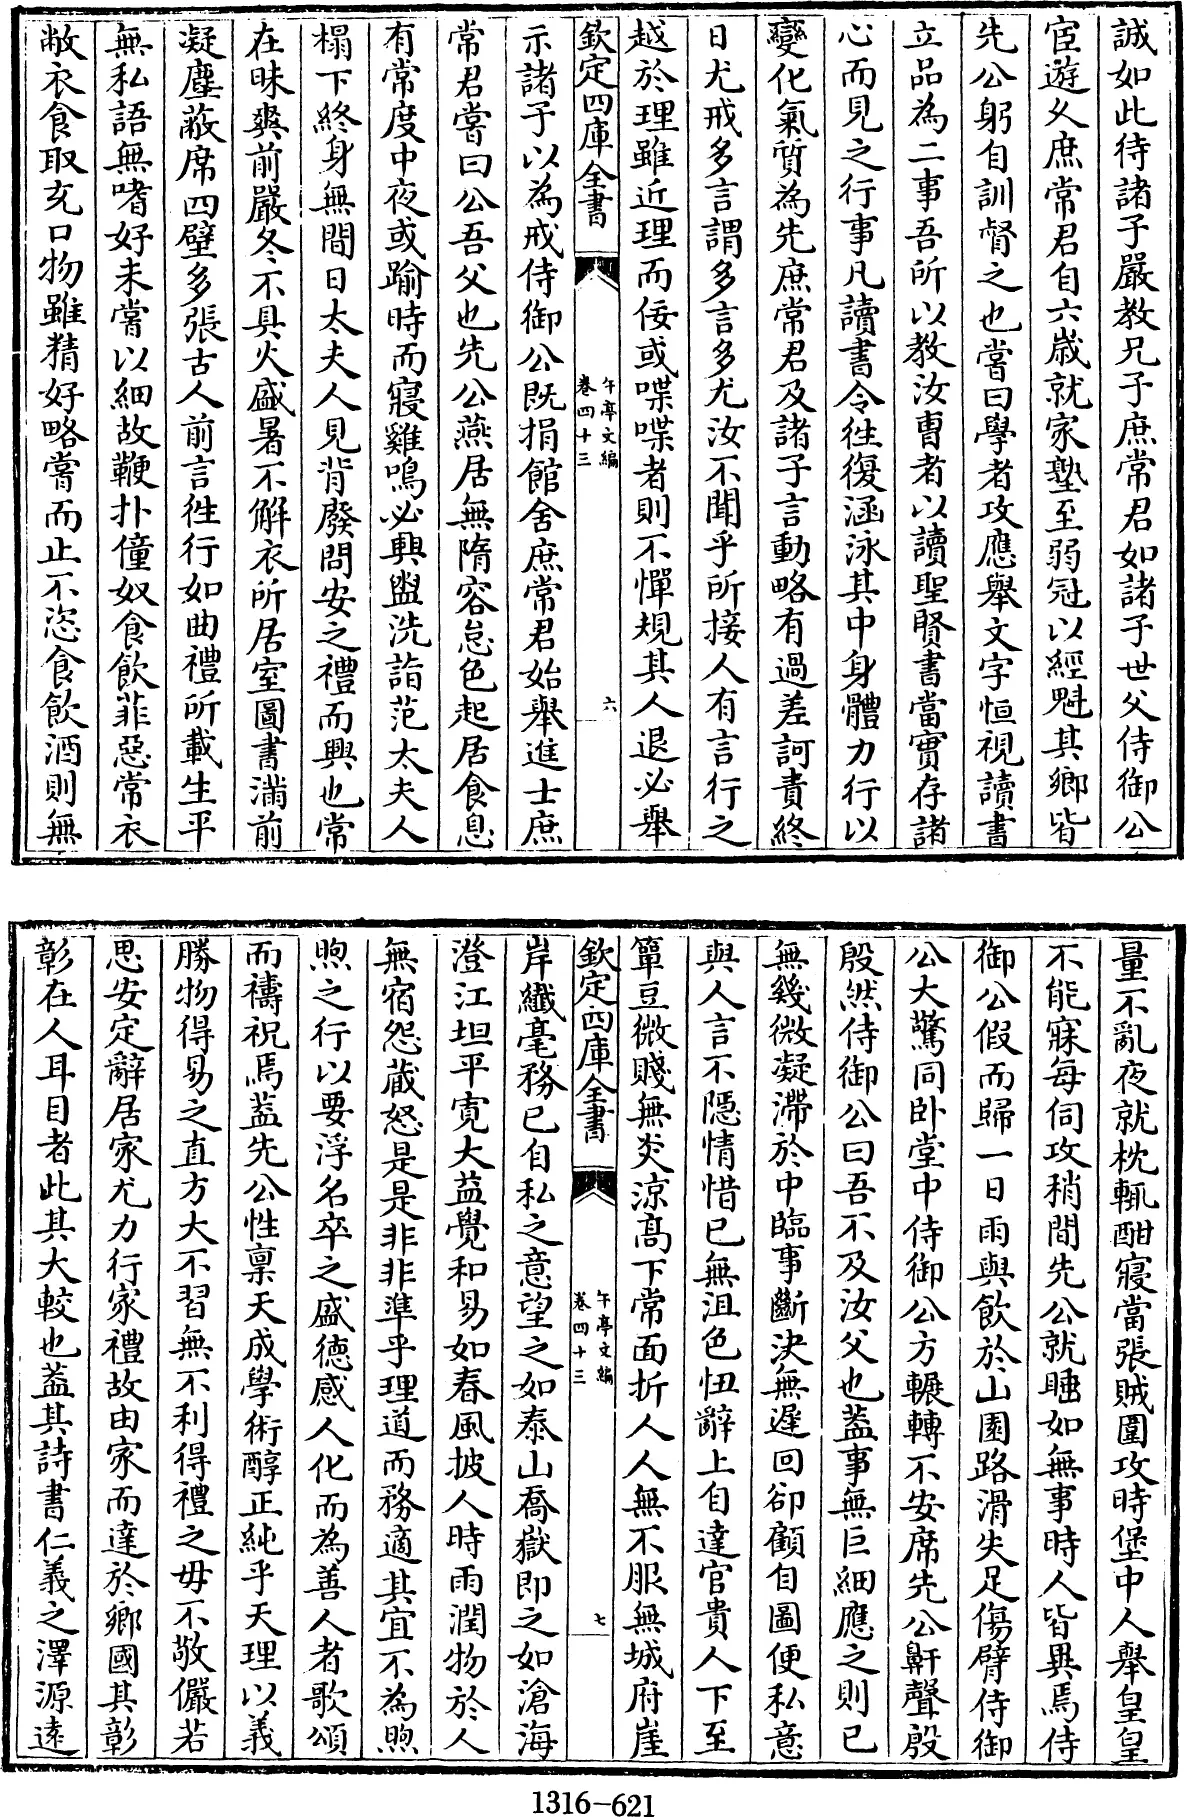 誠如此待諸子嚴教兄子庶常君如諸子世父侍御公
宦遊久庶常君自六歲就家塾至弱冠以經魁其鄉皆
先公躬自訓督之也嘗曰學者攻應舉文字恒視讀書
立品為二事吾所以教汝曹者以讀聖賢書當實存諸
心而見之行事凡讀書令往復涵泳其中身體力行以
變化氣質為先庶常君及諸子言動略有過差訶責終
日尤戒多言謂多言多尤汝不聞乎所接人有言行之
越於理雖近理而佞或喋喋者則不憚規其人退必舉
欽定四庫全書
午亭文編
卷四十三
六
示諸子以為戒侍御公既捐館舍庶常君始舉進士庶
常君嘗曰公吾父也先公燕居無隋容怠色起居食息
有常度中夜或踰時而寢雞鳴必興盥洗詣范太夫人
榻下終身無間日太夫人見背廢問安之禮而興也常
在昧爽前嚴冬不具火盛暑不解衣所居室圖書滿前
凝塵蔽席四壁多張古人前言徃行如曲禮所載生平
無私語無嗜好未嘗以細故鞭扑僮奴食飲菲惡常衣
敝衣食取充口物雖精好略嘗而止不恣食飲酒則無
量不亂夜就枕輒酣寢當張賊圍攻時堡中人舉皇皇
不能寐每伺攻稍間先公就睡如無事時人皆異焉侍
御公假而歸一日雨與飲於山園路滑失足傷臂侍御
公大驚同卧堂中侍御公方輾轉不安席先公鼾聲殷
殷然侍御公曰吾不及汝父也葢事無巨細應之則已
無幾微凝滯於中臨事斷決無遲回卻顧自圖便私意
與人言不隱情惜已無沮色忸辭上自達官貴人下至
簞豆微賤無炎涼高下常面折人人無不服無城府崖
欽定四庫全書
午亭文編
卷四十三
七
岸纎毫務已自私之意望之如泰山喬獄即之如滄海
澄江坦平寛大益覺和易如春風披人時雨潤物於人
無宿怨蔵怒是是非非準乎理道而務適其宜不為煦
煦之行以要浮名卒之盛德感人化而為善人者歌頌
而禱祝焉葢先公性稟天成學術醇正純乎天理以義
勝物得易之直方大不習無不利得禮之毋不敬儼若
思安定辭居家尤力行家禮故由家而達於鄉國其彰
彰在人耳目者此其大較也葢其詩書仁義之澤源遠
1316-621